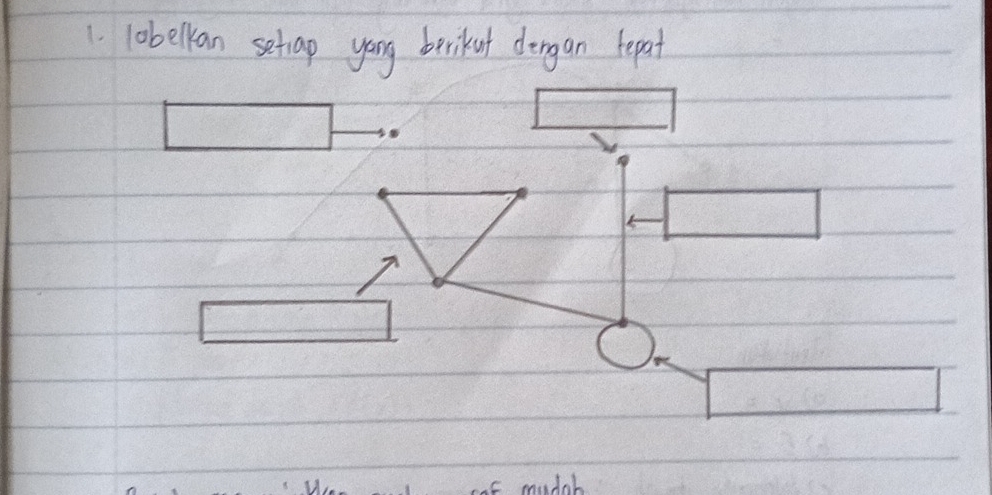 1. labelkan setiap yang berikut dengan tepat
mudah